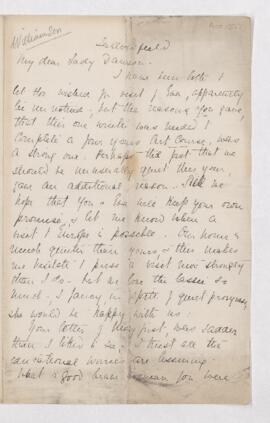 Williamson
My dear Lady Dawson.
I have been loth to
let the wished for visit of Eva, apparently
lie unnoticed, but the reasons you gave,
that this one winter was needed to
complete a four years Art Course, was
a strong one. Perhaps the fact that we
should be unusually quiet this year,
gave an additional reason. Still we
hope that you & Eva will keep your own
promise, & let me know when a
visit to Europe is possible. Our home is
much quieter than yours, & this makes
me hesitate to press a visit more strongly
than I do. but we love the lassie so
much, I fancy, in spite of quiet
she would be happy with us.
Your letter of was sadder
than I liked to see. I trust all the
educational worries are lessening.
What a good brave woman you were